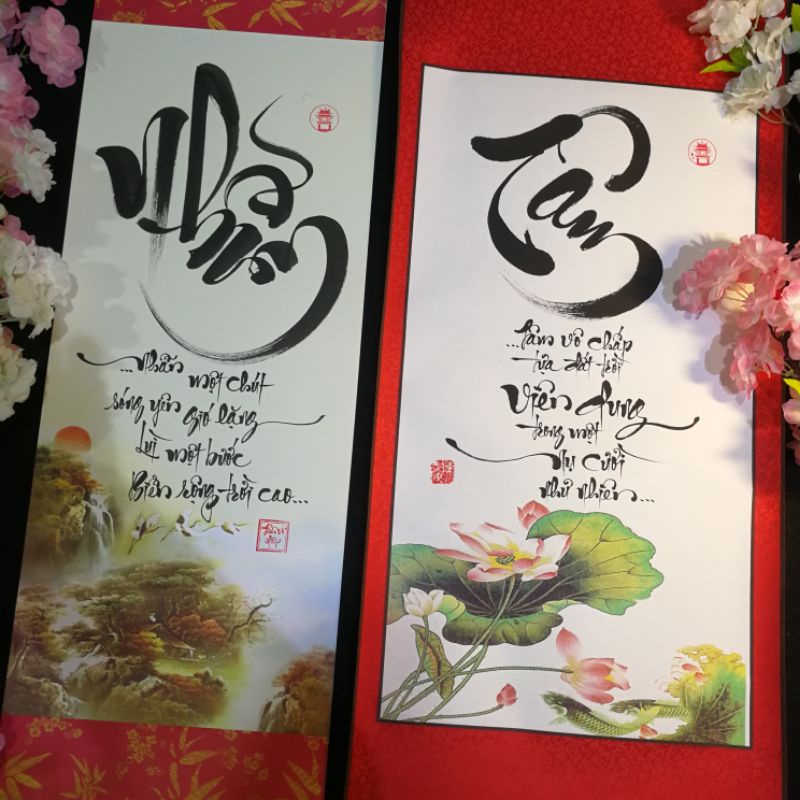 Nhẫn
...Nhẫn một chút
sóng yên gió lặng
Lùi một bước
Biển rộng trời cao...
Tâm
...tâm vô chấp
tựa đất trời
Viên dung
trong một
Nụ cười
như nhiên...